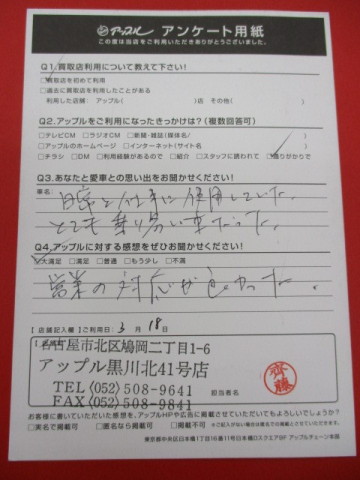 アップル アンケート用紙
この度は当店をご利用いただきありがとうございました。
Q1.買取店利用について教えて下さい!
□買取店を初めて利用
□過去に買取店を利用したことがある
利用した店舗: アップル( )店 その他( )
Q2.アップルをご利用になったきっかけは?(複数回答可)
□テレビCM □ラジオCM □新聞・雑誌(媒体名/ )
□アップルのホームページ □インターネット(サイト名 )
□チラシ □DM □利用経験があるので □紹介 □スタッフに誘われて □通りがかりで
Q3.あなたと愛車との思い出をお聞かせください!
車名:
日常と仕事に使用していた。
とても乗り易い車だった。
Q4.アップルに対する感想をぜひお聞かせください!
□大満足 □満足 □普通 □もう少し □不満
営業の対応が良かった。
【店舗記入欄】ご利用日: 3 月 18 日
名古屋市北区鳩岡二丁目1-6
アップル黒川北41号店
TEL〈052〉508-9641
FAX〈052〉508-9841
担当者名
齊藤
お客様に書いていただいた感想を、アップルHPや広告に掲載させていただいてもよろしいでしょうか?
□実名で掲載可 □匿名なら掲載可 □掲載不可
東京都中央区日本橋1丁目16番11号日本橋DスクエアBF アップルチェーン本部